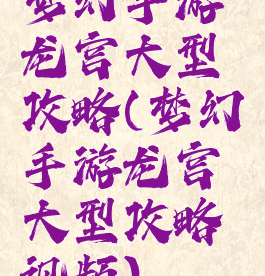 梦幻手游
龙宫大型
攻略(梦幻
手游龙宫
大型攻略
视频)